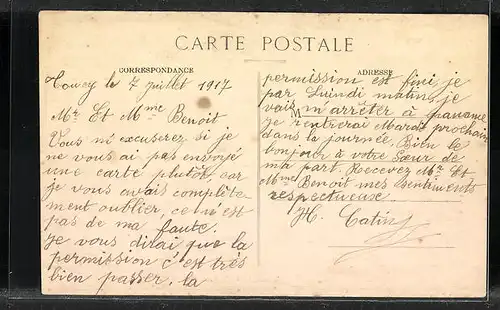 CARTE POSTALE
CORRESPONDANCE
Toucy le 7 juillet 1917
Mr Et Mme Benoit
Vous m'excuserez si je
ne vous ai pas envoyé
une carte plutôt car
je vous avais complète-
ment oublier, ce n'est
pas de ma faute.
Je vous dirai que la
permission c'est très
bien passer, la
ADRESSE
permission est fini, je
par Luindi matin, je
vais m'arrêter à
je rentrerai Mardi prochain
dans la journée, Bien le
bonjour à votre Sœur de
ma part. Recever Mr Et
Mme Benoit mes Sentiments
respectueuse.
H. Catin